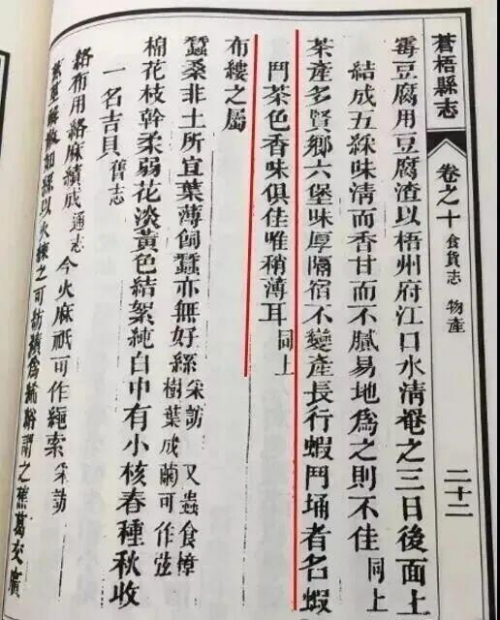 蒼梧縣志
卷之十 食貨志 物產
二十二
霉豆腐用豆腐渣以梧州府江口水清罨之三日後面上
結成五綵味清而香甘而不膩易地為之則不佳 同上
茶產多賢鄉六堡味厚隔宿不變產長行蝦鬥埇者名蝦
鬥茶色香味俱佳唯稍薄耳 同上
布縷之屬
蠶桑非土所宜葉薄飼蠶亦無好絲 采訪 又蟲食樟
樹葉成繭可作弦
棉花枝幹柔弱花淡黃色結絮純白中有小核春種秋收
一名吉貝 舊志
絡布用絡麻績成 通志 今火麻祇可作繩索 采訪
以火練之可紡績為
謂之蕉葛交廣